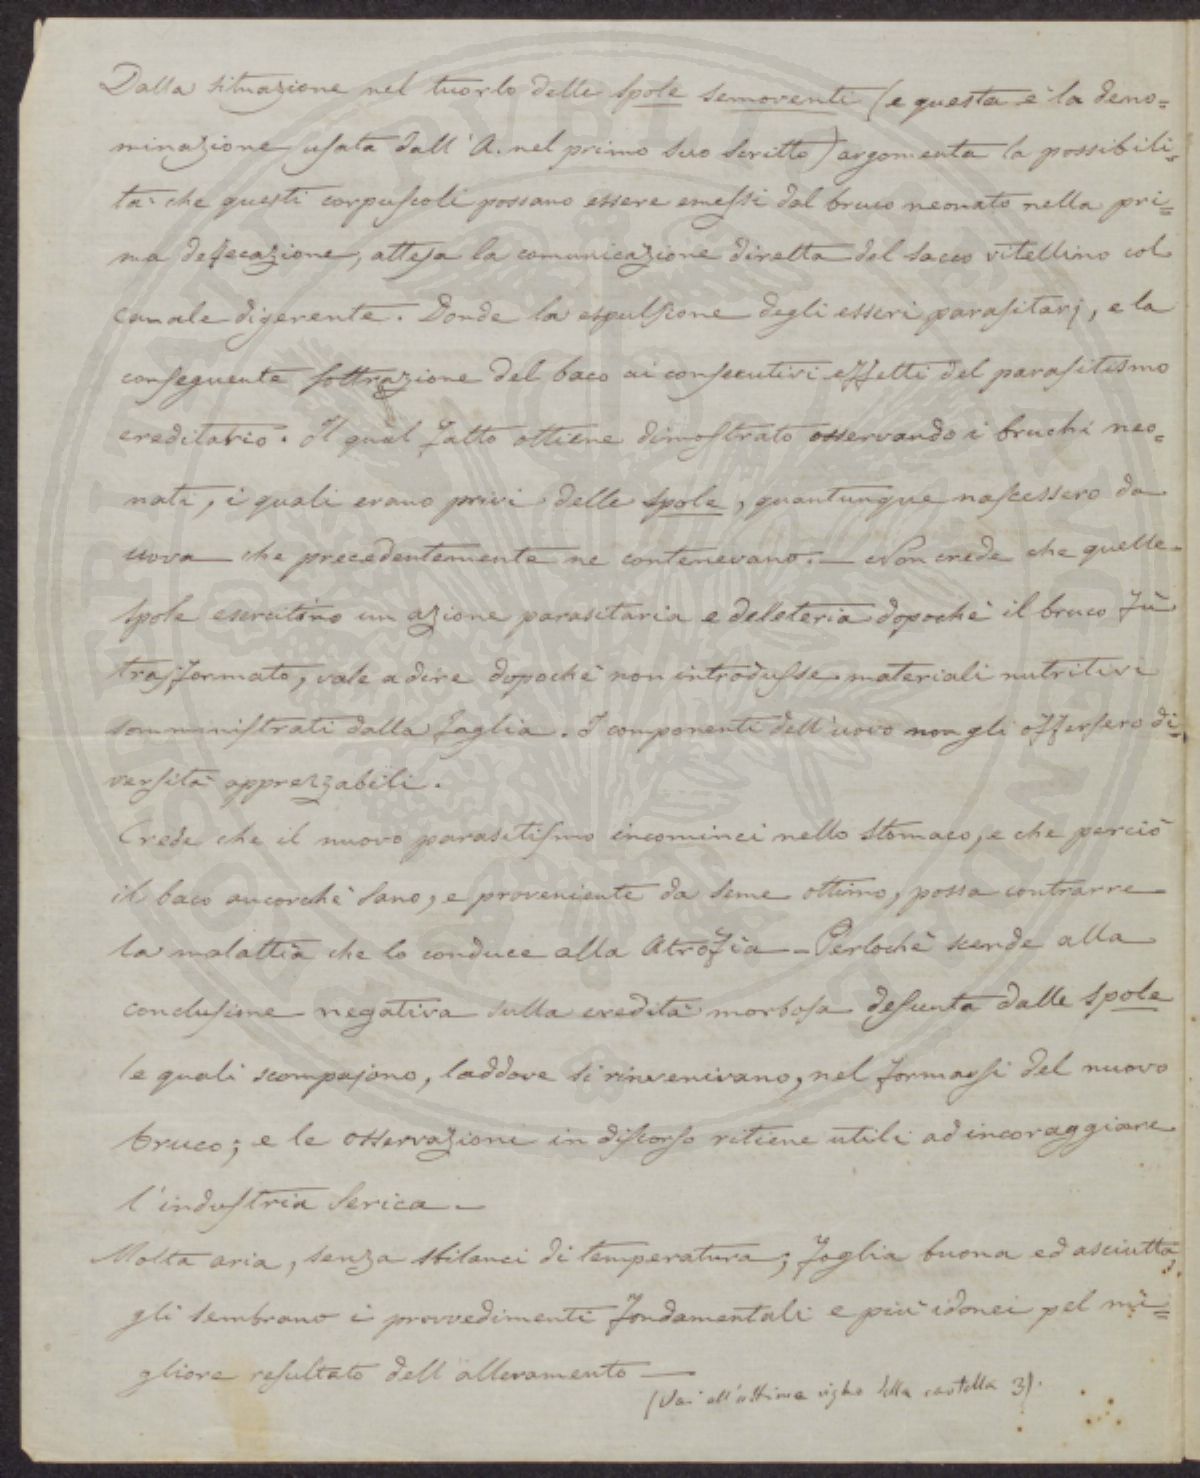 Dalla situazione nel tuorlo delle spole semoventi (e questa è la deno=
minazione usata dall'A. nel primo suo scritto) argomenta la possibili=
tà che questi corpuscoli possano essere emessi dal bruco neonato nella pri=
ma defecazione, attesa la comunicazione diretta del sacco vitellino col
canale digerente. Donde la espulsione degli esseri parasitarj, e la
conseguente sottrazione del baco ai consecutivi effetti del parasitismo
ereditario. Il qual fatto ottiene dimostrato osservando i bruchi neo=
nati, i quali erano privi delle spole, quantunque nascessero da
uova che precedentemente ne contenevano. — Non crede che quelle
spole esercitino un azione parasitaria e deleteria dopochè il bruco fù
trasformato, vale a dire dopochè non introdusse materiali nutritivi
somministrati dalla foglia. I componenti dell'uovo non gli offersero di=
versità apprezzabili.
Crede che il nuovo parasitismo incominci nello stomaco, e che perciò
il baco ancorchè sano, e proveniente da seme ottimo, possa contrarre
la malattia che lo conduce alla Atrofia — Perlochè scende alla
conclusione negativa sulla eredità morbosa desunta dalle spole
le quali scompajono, laddove si rinvenivano, nel formarsi del nuovo
bruco; e le osservazioni in discorso ritiene utili ad incoraggiare
l'industria serica —
Molta aria, senza sbilanci di temperatura; foglia buona ed asciutta,
gli sembrano i provvedimenti fondamentali e più idonei pel mi=
gliore resultato dell'allevamento —
(Vai all'ottima riga della cartella 3).